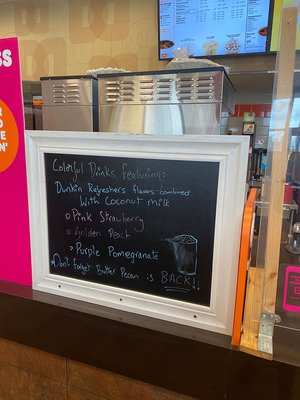 Colorful Drinks featuring:
Dunkin Refreshers flavors combined
With Coconut milk
Pink Strawberry
Golden Peach
Purple Pomegranate
Don't forget Butter Pecan is BACK!